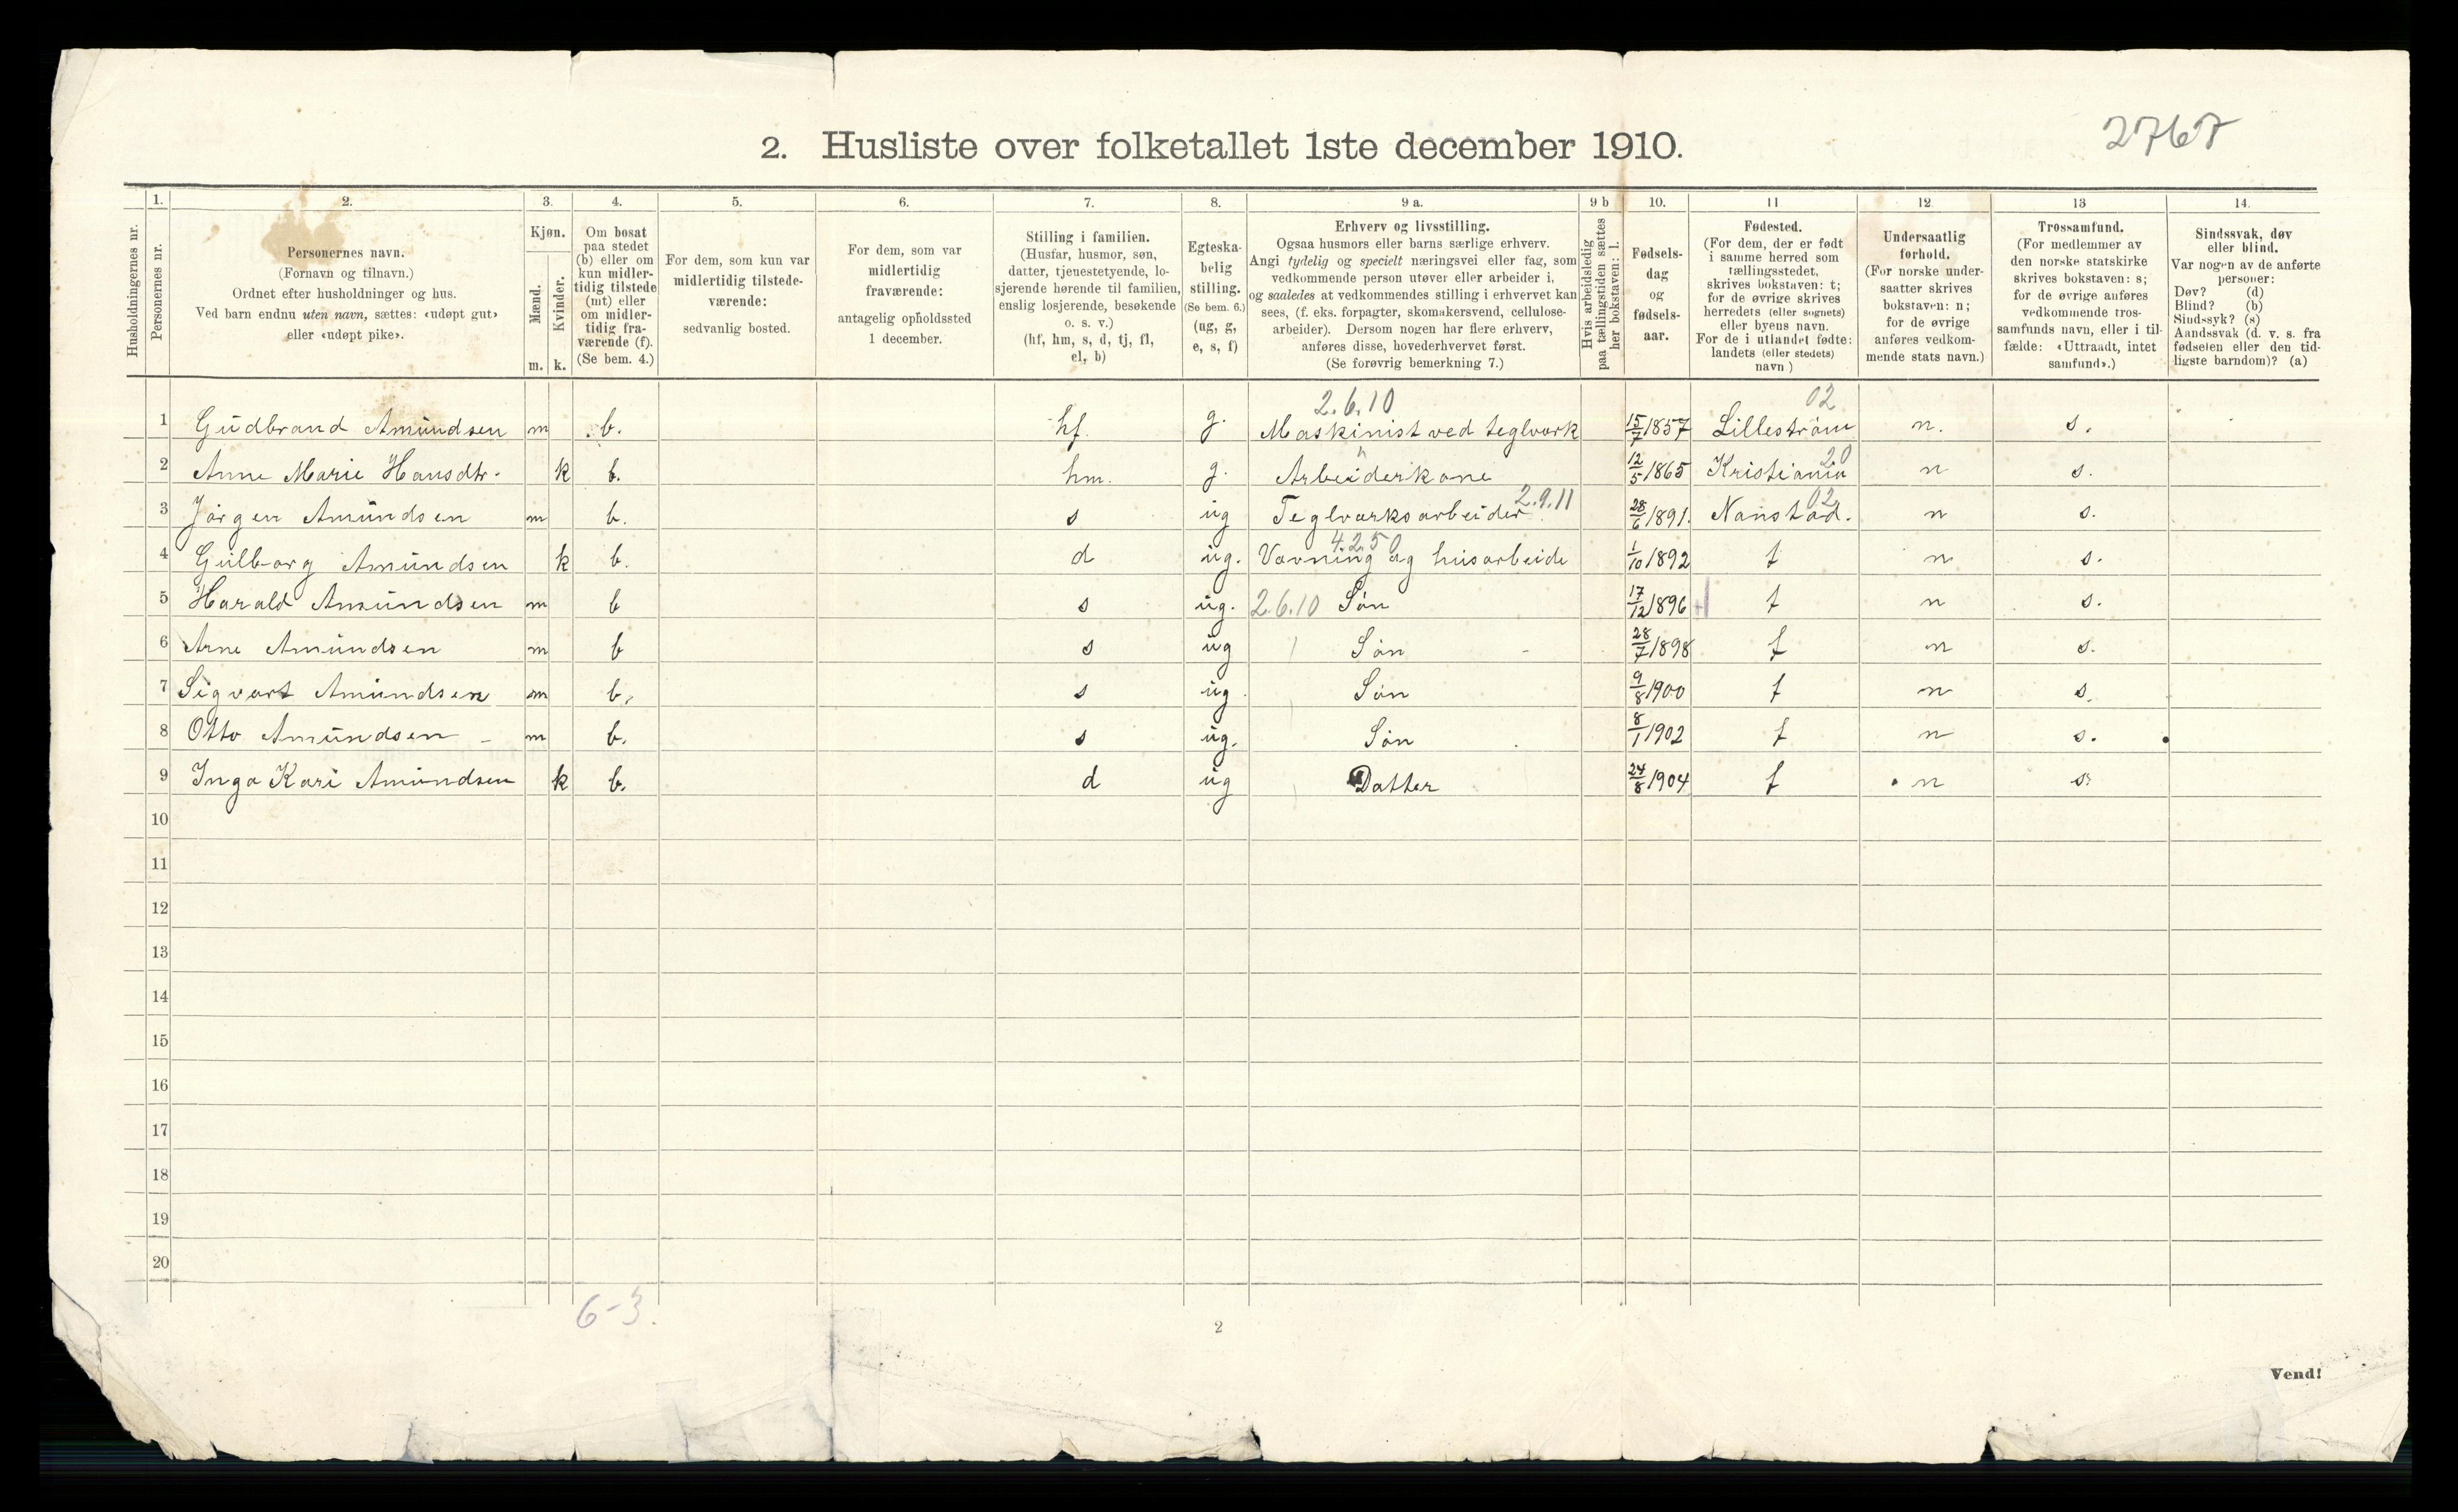 2767
2. Husliste over folketallet 1ste december 1910.
Husholdningernes nr.
1.
Personernes nr.
2.
Personernes navn.
(Fornavn og tilnavn.)
Ordnet efter husholdninger og hus.
Ved barn endnu uten navn, sættes: «udøpt gut»
eller «udøpt pike».
3.
Kjøn.
Mænd.
Kvinder.
m. k.
4.
Om bosat
paa stedet
(b) eller om
kun midler-
tidig tilstede
(mt) eller
om midler-
tidig fra-
værende (f).
(Se bem. 4.)
5.
For dem, som kun var
midlertidig tilstede-
værende:
sedvanlig bosted.
6.
For dem, som var
midlertidig
fraværende:
antagelig opholdssted
1 december.
7.
Stilling i familien.
(Husfar, husmor, søn,
datter, tjenestetyende, lo-
sjerende hørende til familien,
enslig losjerende, besøkende
o. s. v.)
(hf, hm, s, d, tj, fl,
el, b)
8.
Egteska-
belig
stilling.
(Se bem. 6.)
(ug, g,
e, s, f)
9 a.
Erhverv og livsstilling.
Ogsaa husmors eller barns særlige erhverv.
Angi tydelig og specielt næringsvei eller fag, som
vedkommende person utøver eller arbeider i,
og saaledes at vedkommendes stilling i erhvervet kan
sees, (f. eks. forpagter, skomakersvend, cellulose-
arbeider). Dersom nogen har flere erhverv,
anføres disse, hovederhvervet først.
(Se forøvrig bemerkning 7.)
9 b
Hvis arbeidsledig
paa tællingstiden sættes
her bokstaven: l.
10.
Fødsels-
dag
og
fødsels-
aar.
11
Fødested.
(For dem, der er født
i samme herred som
tællingsstedet,
skrives bokstaven: t;
for de øvrige skrives
herredets (eller sognets)
eller byens navn.
For de i utlandet fødte:
landets (eller stedets)
navn.)
12.
Undersaatlig
forhold.
(For norske under-
saatter skrives
bokstaven: n;
for de øvrige
anføres vedkom-
mende stats navn.)
13
Trossamfund.
(For medlemmer av
den norske statskirke
skrives bokstaven: s;
for de øvrige anføres
vedkommende tros-
samfunds navn, eller i til-
fælde: «Uttraadt, intet
samfund».)
14.
Sindssvak, døv
eller blind.
Var nogen av de anførte
personer:
Døv? (d)
Blind? (b)
Sindssyk? (s)
Aandssvak (d. v. s. fra
fødselen eller den tid-
ligste barndom)? (a)
2.6.10 02
1 Gudbrand Amundsen m b. hf. g. Maskinist ved teglverk 15/7 1857 Lillestrøm n. s.
" 20
2 Anne Marie Hansdtr. k b. hm. g. Arbeiderkone 12/5 1865 Kristiania n s.
2.9.11 02
3 Jørgen Amundsen m b. s ug Teglverksarbeider 28/6 1891. Nanstad. n s.
4.2.50
4 Gulborg Amundsen k b. d ug. Vævning og husarbeide 1/10 1892 t n s.
5 Harald Amundsen m b s ug. 2.6.10 Søn 17/12 1896 t n s.
6 Arne Amundsen m b s ug Søn 28/7 1898 t n s.
7 Sigvart Amundsen m b. s ug Søn 9/8 1900 t n s.
8 Otto Amundsen m b. s ug. Søn 8/1 1902 t n s.
9 Inga Kari Amundsen k b. d ug Datter 24/8 1904 t n s.
10
11
12
13
14
15
16
17
18
19
20
6-3.
2
Vend!